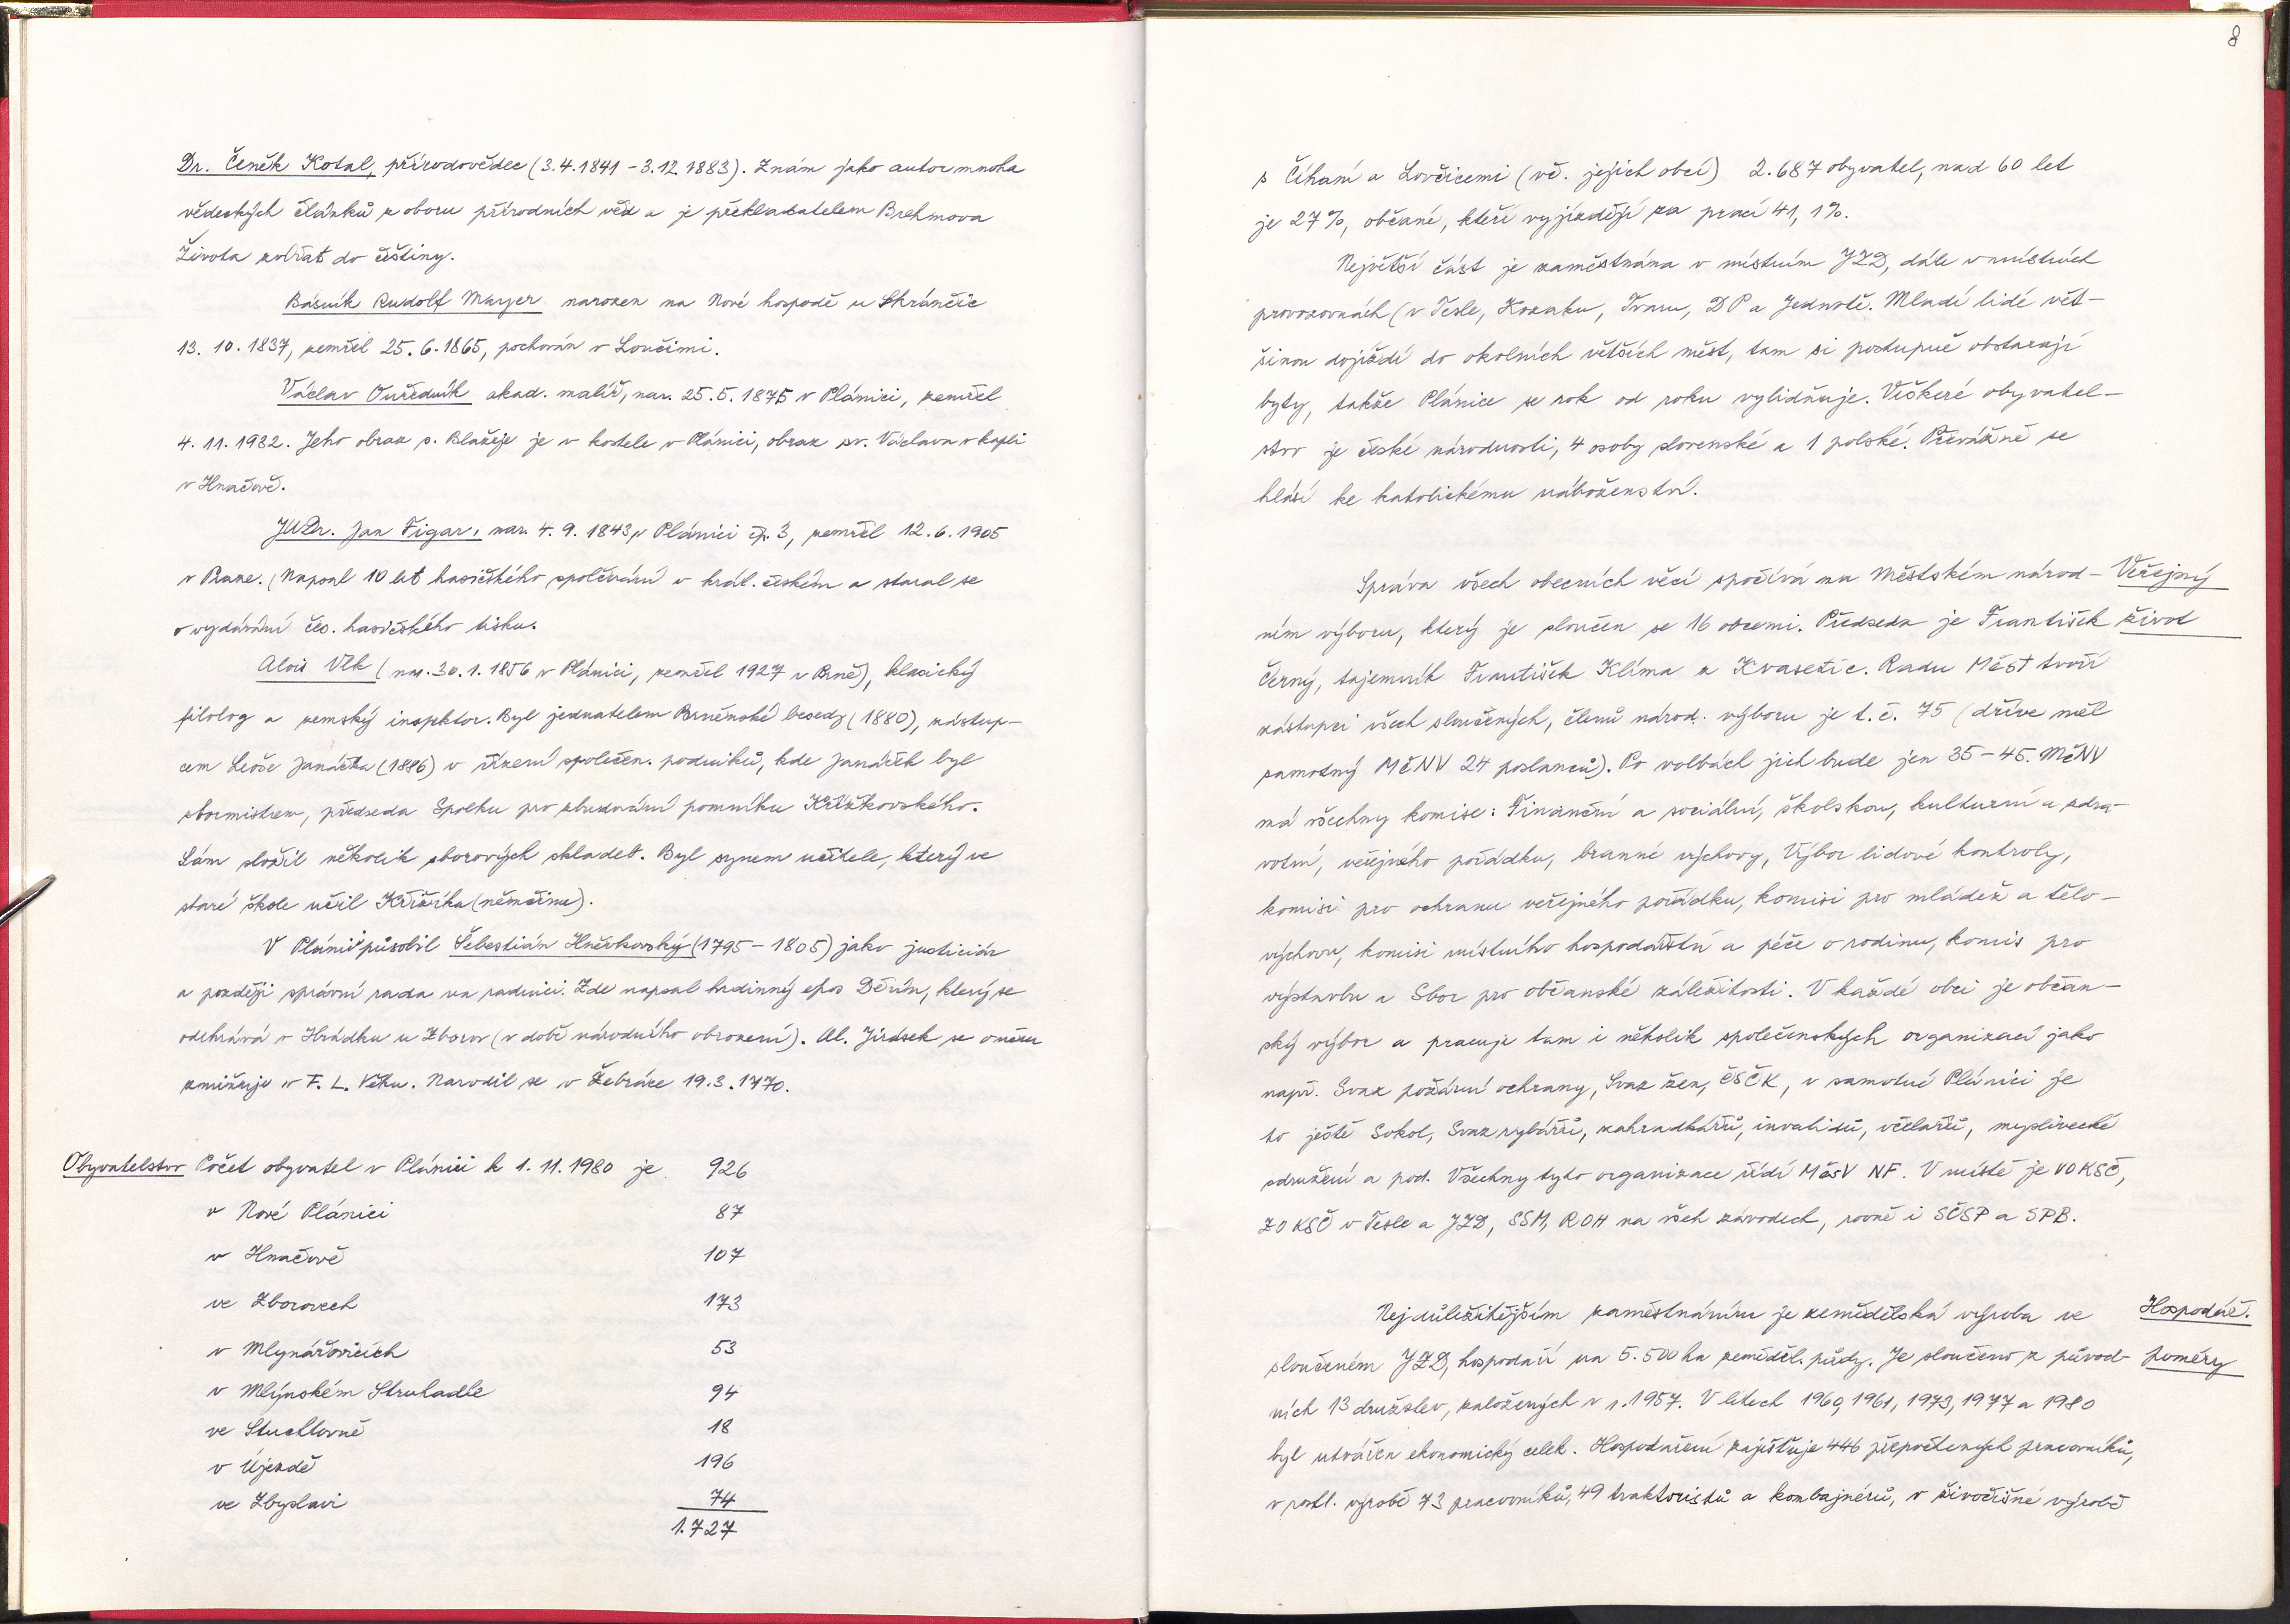 Dr. Čeněk Kotal, přírodovědec (3.4.1841 – 3.12.1883). Znám jako autor mnoha
vědeckých článků z oboru přírodních věd a je překladatelem Brehmova
Života zvířat do češtiny.
Básník Rudolf Mayer narozen na Nové hospodě u Skránčic
13. 10. 1837, zemřel 25. 6. 1865, pochován v Loučimi.
Václav Ouředník akad. malíř, nar. 25. 5. 1875 v Plánici, zemřel
4. 11. 1932. Jeho obraz s. Blažeje je v kostele v Plánici, obraz sv. Václava v kapli
v Hnačově.
JUDr. Jan Figar, nar. 4. 9. 1843 v Plánici čp. 3, zemřel 12. 6. 1905
v Praze. Napsal 10 let hasičského spolčování v král. českém a staral se
o vydávání čes. hasičského tisku.
Alois Vlk (nar. 30. 1. 1856 v Plánici, zemřel 1927 v Brně), klasický
filolog a zemský inspektor. Byl jednatelem Brněnské besedy (1880), zástup-
cem Leoše Janáčka (1886) v řízení společen. podniků, kde Janáček byl
sbormistrem, předseda Spolku pro zbudování pomníku Křížkovského.
Sám složil několik sborových skladeb. Byl synem učitele, který ve
staré škole učil Křižíka (němčinu).
V Plánici působil Šebestián Hněvkovský (1795 – 1805) jako justiciár
a později správní rada na radnici. Zde napsal hrdinný epos Děvín, který se
odehrává v Hrádku u Zborov (v době národního obrození). Al. Jirásek se o něm
zmiňuje v F. L. Věku. Narodil se v Žebráce 19. 3. 1770.
Obyvatelstvo Počet obyvatel v Plánici k 1. 11. 1980 je 926
v Nové Plánici 87
v Hnačově 107
ve Zborovech 173
v Mlynářovicích 53
v Mlýnském Struhadle 94
ve Štuchlovně 18
v Újezdě 196
ve Zbyslavi 74
1.727
8
s Číhaní a Lovčicemi (vč. jejich obcí) 2.687 obyvatel, nad 60 let
je 27 %, občané, kteří vyjíždějí za prací 41,1 %.
Největší část je zaměstnána v místním JZD, dále v místních
provozovnách (v Tesle, Kozaku, Tvaru, DP a Jednotě. Mladí lidé vět-
šinou dojíždí do okolních větších měst, tam si postupně obstarají
byty, takže Plánice se rok od roku vylidňuje. Veškeré obyvatel-
stvo je české národnosti, 4 osoby slovenské a 1 polské. Převážně se
hlásí ke katolickému náboženství.
Správa všech obecních věcí spočívá na Městském národ- Veřejný
ním výboru, který je sloučen se 16 obcemi. Předseda je František život
Černý, tajemník František Klíma z Kvasetic. Radu Měst tvoří
zástupci všech sloučených, členů národ. výboru je t. č. 75 (dříve měl
samotný MěNV 24 poslanců). Po volbách jich bude jen 35 – 45. MěNV
má všechny komise: Finanční a sociální, školskou, kulturní a zdra-
votní, veřejného pořádku, branné výchovy, Výbor lidové kontroly,
komisi pro ochranu veřejného pořádku, komisi pro mládež a tělo-
výchovu, komisi místního hospodářství a péče o rodinu, komis pro
výstavbu a Sbor pro občanské záležitosti. V každé obci je občan-
ský výbor a pracuje tam i několik společenských organizací jako
např. Svaz požární ochrany, Svaz žen, ČSČK, v samotné Plánici je
to ještě Sokol, Svaz rybářů, zahradkářů, invalidů, včelařů, myslivecké
sdružení a pod. Všechny tyto organizace řídí MěsV NF. V místě je VO KSČ,
ZO KSČ v Tesle a JZD, SSM, ROH na všech závodech, rovně i SČSP a SPB.
Nejdůležitějším zaměstnáním je zemědělská výroba ve Hospodář.
sloučeném JZD, hospodaří na 5.500 ha zeměděl. půdy. Je sloučeno z původ- poměry
ních 13 družstev, založených v r. 1957. V letech 1960, 1961, 1973, 1977 a 1980
byl utvářen ekonomický celek. Hospodaření zajišťuje 446 přepočtených pracovníků,
v rostl. výrobě 73 pracovníků, 49 traktoristů a kombajnérů, v živočišné výrobě